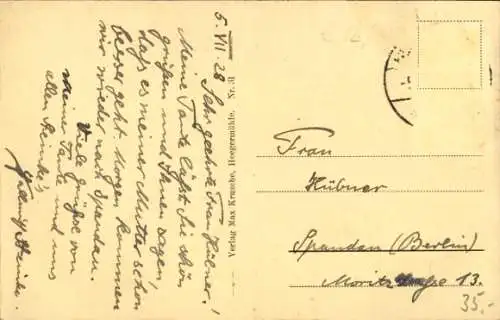 5. VII. 28
Sehr geehrte Frau Hübner!
Meine Tante läßt Sie schön
grüßen und Ihnen sagen,
daß es meiner Mutter schon
besser geht. Morgen kommen
wir wieder nach Spandau.
Viele Grüße von
meiner Tante und uns
allen
Verlag Max Krusche, Heegermühle. Nr. 31
Frau
Hübner
Spandau (Berlin)
Moritzstraße 13.
35.-